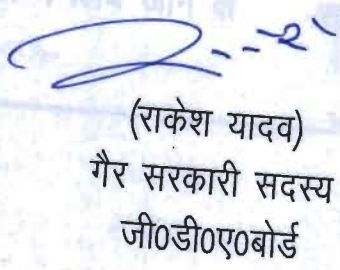 (राकेश यादव)
गैर सरकारी सदस्य
जी0डी0ए0बोर्ड